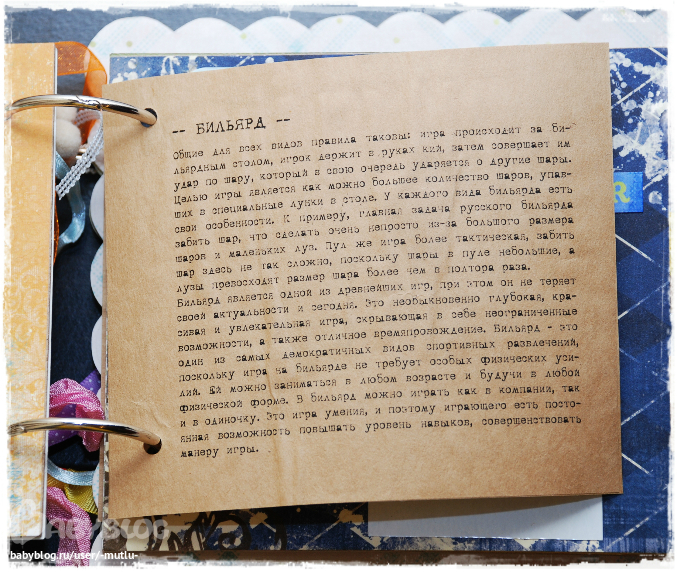 -- БИЛЬЯРД --
Общие для всех видов правила таковы: игра происходит за би-
льярдным столом, игрок держит в руках кий, затем совершает им
удар по шару, который в свою очередь ударяется о другие шары.
Целью игры является как можно большее количество шаров, упав-
ших в специальные лунки в столе. У каждого вида бильярда есть
свои особенности. К примеру, главная задача русского бильярда
забить шар, что сделать очень непросто из-за большого размера
шаров и маленьких луз. Пул же игра более тактическая, забить
шар здесь не так сложно, поскольку шары в пуле небольшие, а
лузы превосходят размер шара более чем в полтора раза.
Бильярд является одной из древнейших игр, при этом он не теряет
своей актуальности и сегодня. Это необыкновенно глубокая, кра-
сивая и увлекательная игра, скрывающая в себе неограниченные
возможности, а также отличное времяпровождение. Бильярд - это
один из самых демократичных видов спортивных развлечений,
поскольку игра на бильярде не требует особых физических уси-
лий. Ей можно заниматься в любом возрасте и будучи в любой
физической форме. В бильярд можно играть как в компании, так
и в одиночку. Это игра умения, и поэтому играющего есть посто-
янная возможность повышать уровень навыков, совершенствовать
манеру игры.
R
BABYBLOG
babyblog.ru/user/-mutlu-